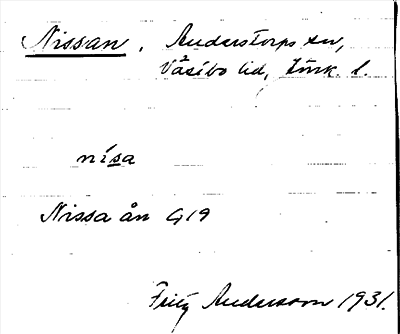 Nissan, Anderstorps sn,
Västbo hd, Jönk. l.
nisa
Nissa ån G19
Fritz Andersson 1931.